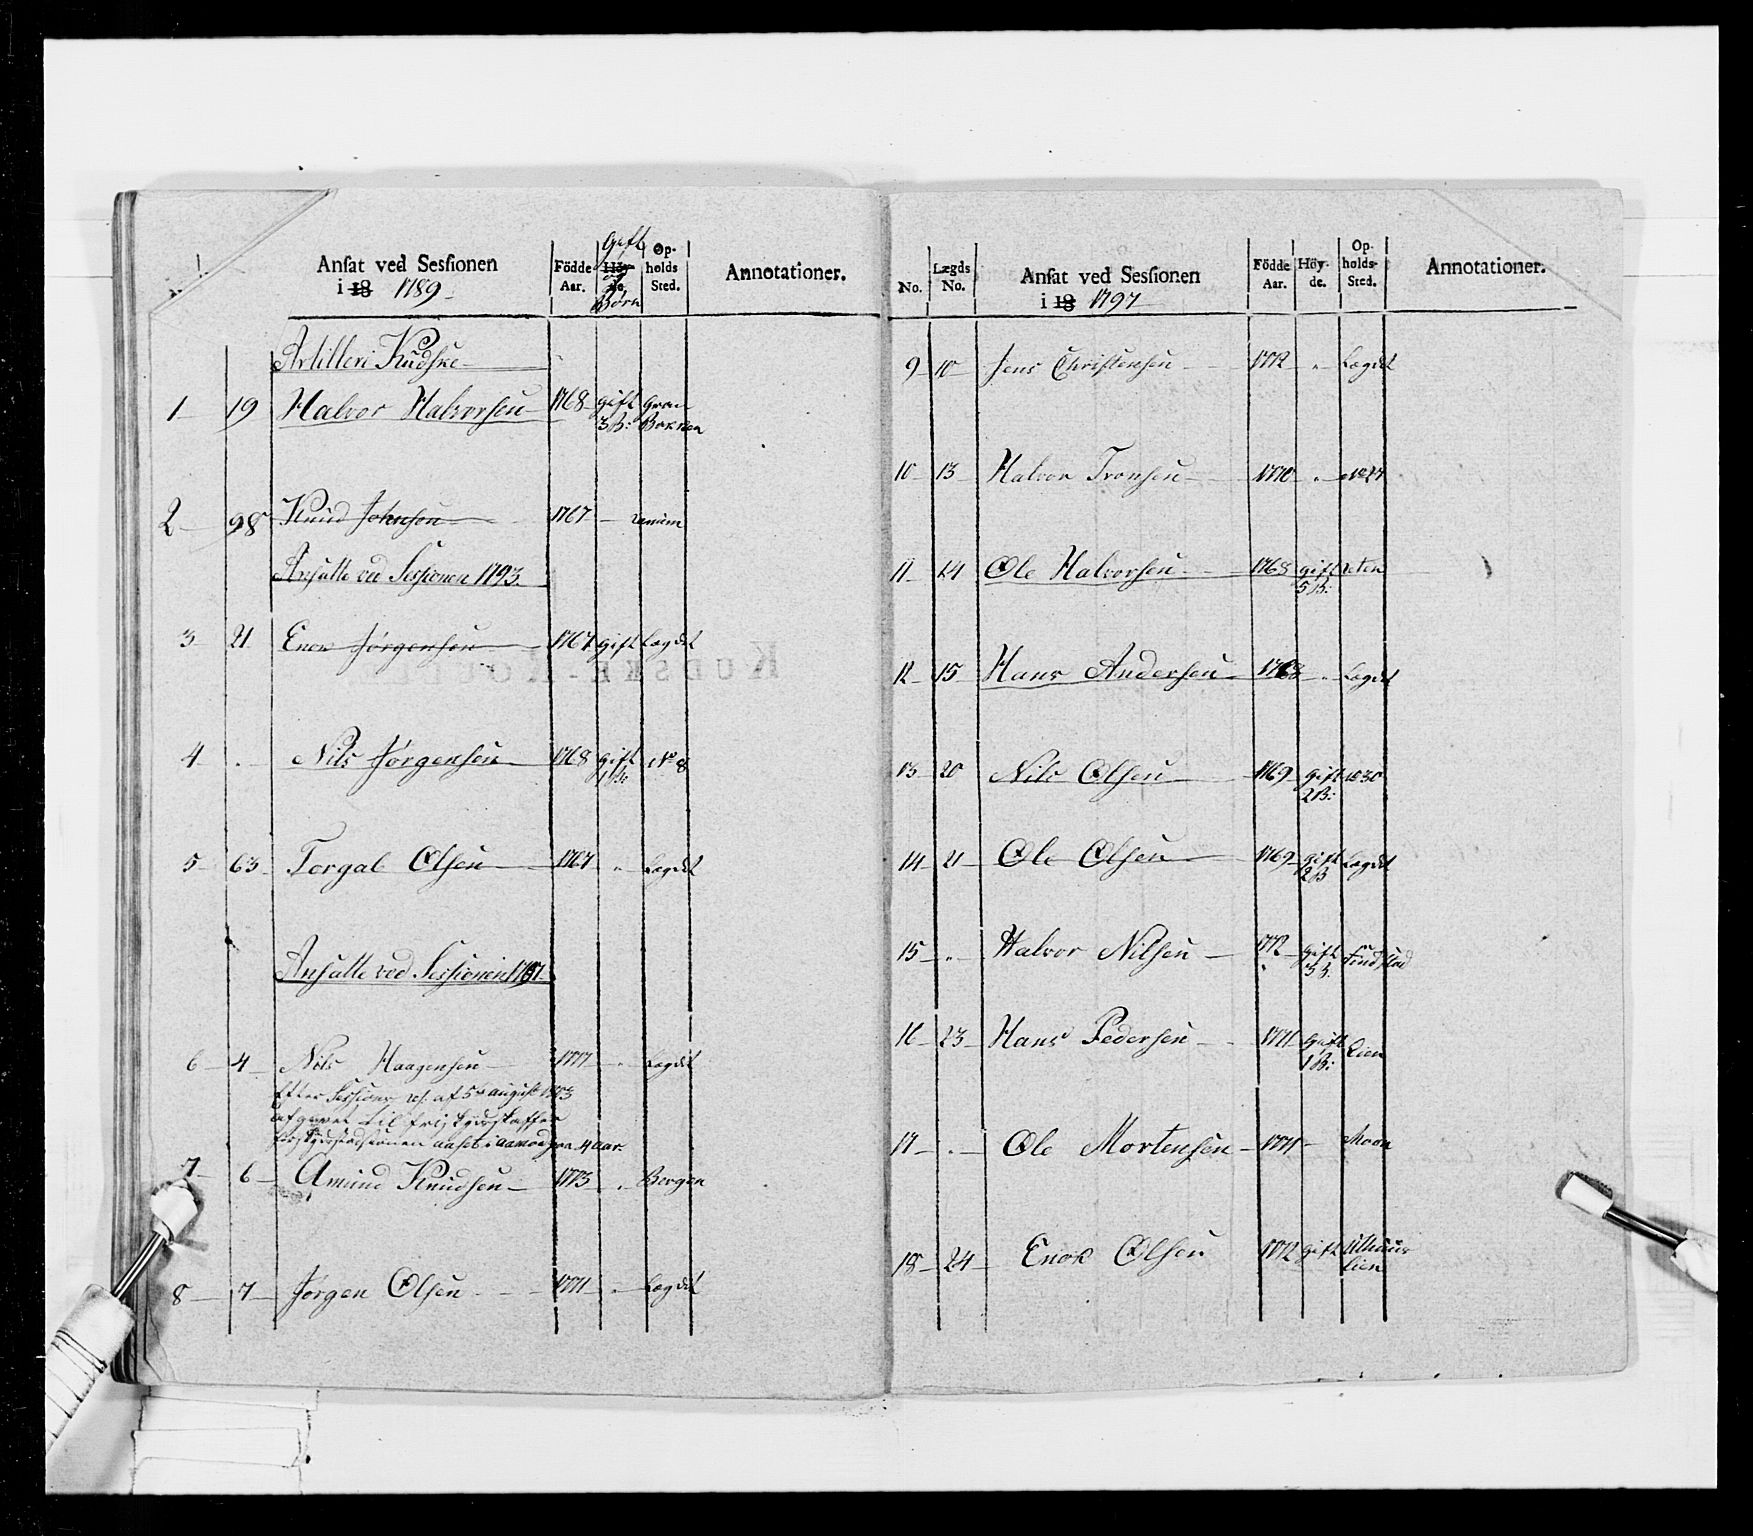 Ansat ved Sessionen
i 18 1789
Födde Aar.
Gift og Börn
Höyde.
Opholds Sted.
Annotationer.
Artilleri Kudske
1 19 Halvor Halvorsen 1768 gift 3 B: Gran Bakken
2 98 Knud Johnsen 1767
Ansatte ved Sessionen 1793.
3 21 Enok Jörgensen 1767 gift Lægdet
4 . Nils Jörgensen 1768 gift 1 B: No 8
5 63 Torgal Olsen 1767 " Lægdet
Ansatte ved Sessionen 1797
6 4 Nils Haagensen 1777 " Lægdet
Efter Sessions res: af 5te august 1803
afgivet til friskydsskaffer
4 aar.
7 6 Amund Knudsen 1773 " Bergen
8 7 Jörgen Olsen 1771 " Lægdet
No.
Lægds No.
Ansat ved Sessionen
i 18 1797
Födde Aar.
Höyde.
Opholds Sted.
Annotationer.
9 10 Jens Christensen 1772 " Lægdet
10 13 Halvor Tronsen 1770 " No 27
11 14 Ole Halvorsen 1768 gift 5 B:
12 15 Hans Andersen 1768 " Lægdet
13 20 Nils Olsen 1769 gift 2 B: No 30
14 21 Ole Olsen 1769 gift 2 B Lægdet
15 " Halvor Nilsen 1772 gift 3 B.
16 23 Hans Pedersen 1771 gift 1 B: Lien
17 " Ole Mortensen 1771 Moen
18 24 Enok Olsen 1772 gift Ulhuus Lien